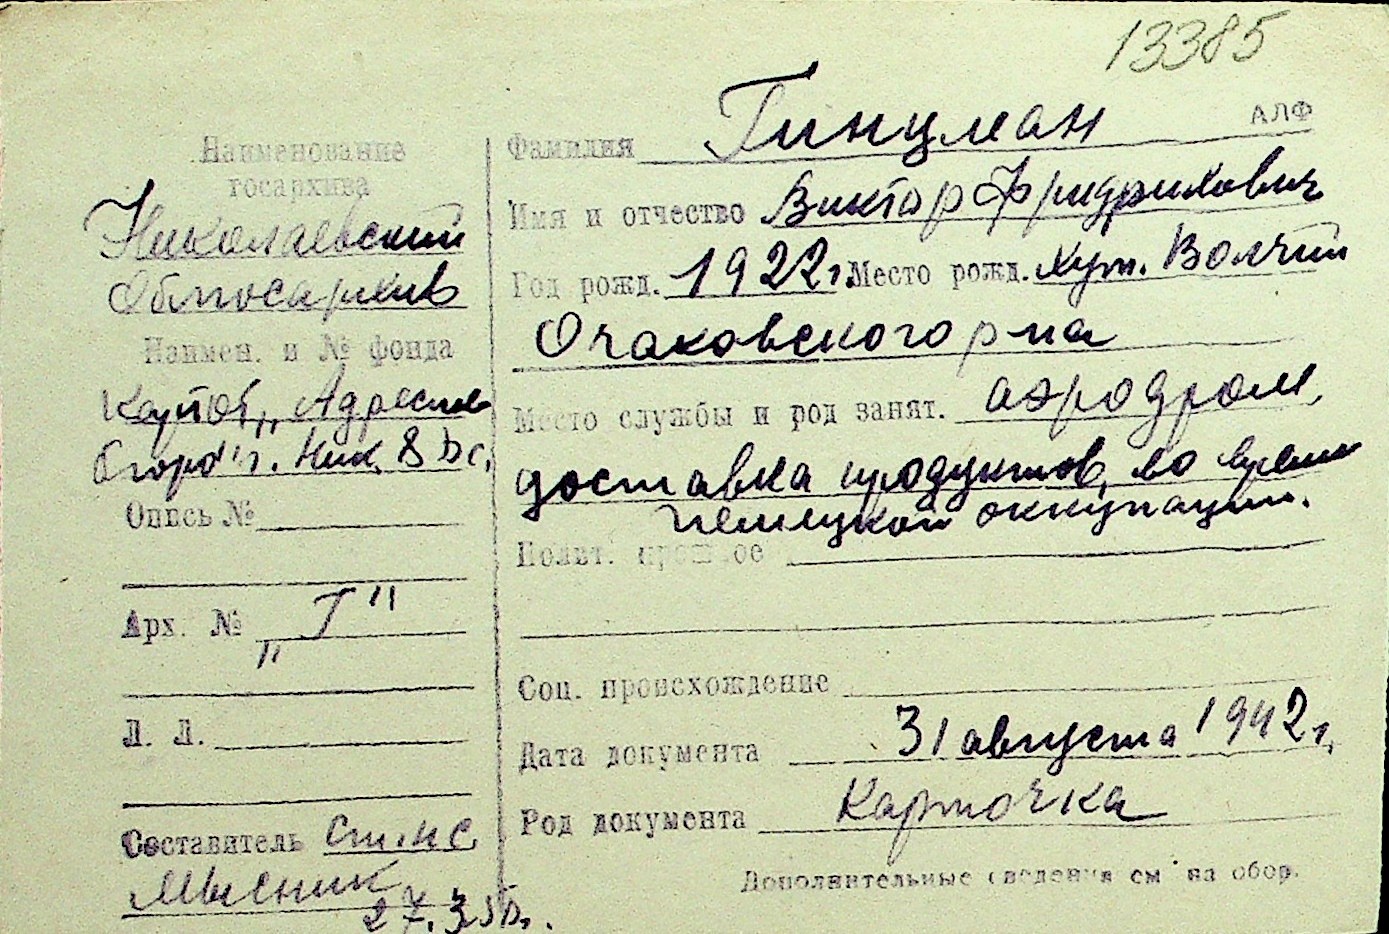 13385
АЛФ
Фамилия Гинцман
Имя и отчество Виктор Фридрихович
Год рожд. 1922 г. Место рожд. хут. Волчий
Очаковского р-на
Место службы и род занят. аэродром,
доставка продуктов, во время
немецкой оккупации.
Полит. прошлое
Соц. происхождение
Дата документа 31 августа 1942 г.
Род документа Карточка
Дополнительные сведения см на обор.
Наименование
госархива
Николаевский
Облгосархив
Наимен. и № фонда
"Адресное
г. Ник.
Опись №
Арх. № "Г"
Л. Л.
Составитель
Мысник
27.3.